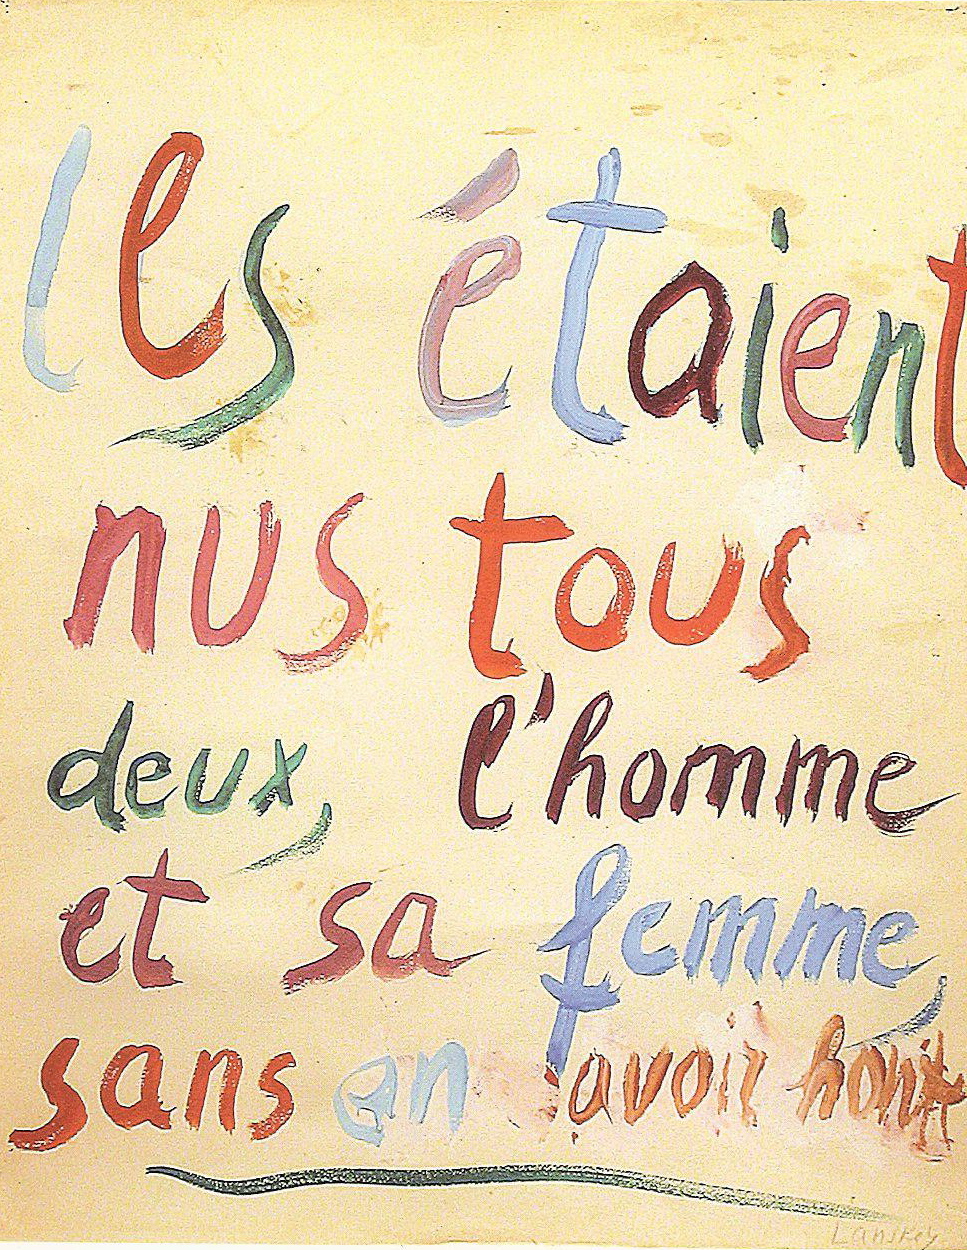 Ils étaient
nus tous
deux, l'homme
et sa femme,
sans en avoir honte
Lanskoy